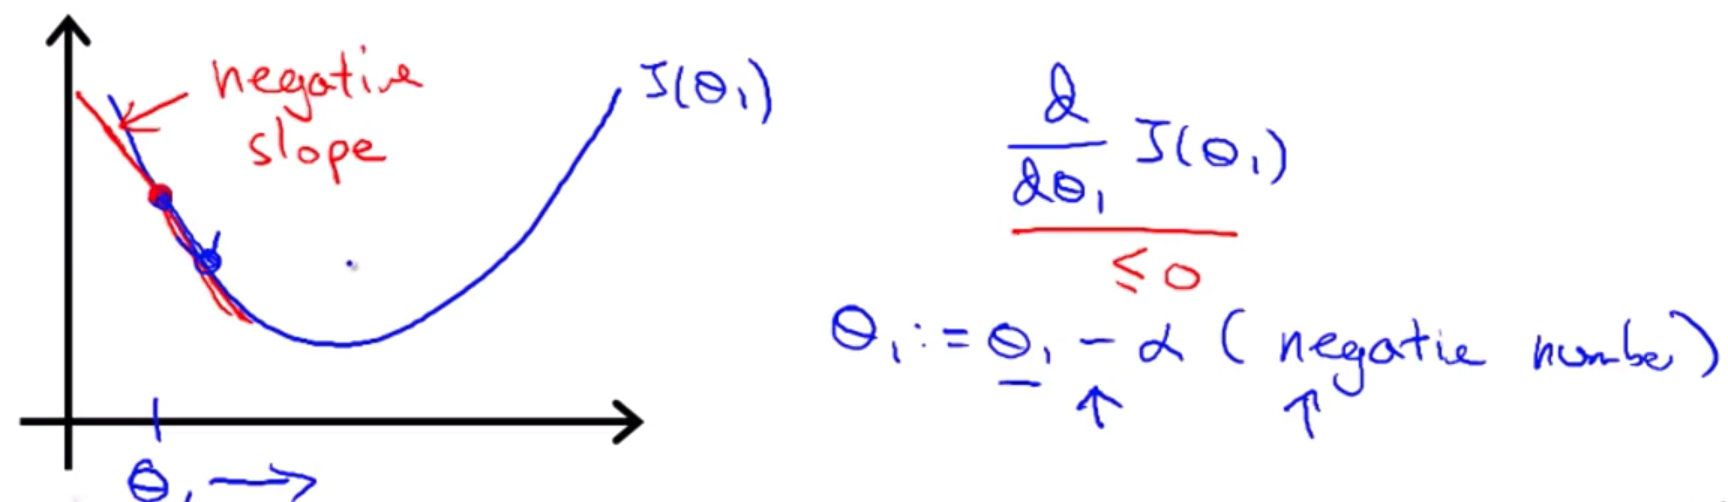 negative
slope
J(θ₁)
d
dθ₁
J(θ₁)
≤ 0
θ₁ := θ₁ - α (negative number)
θ₁